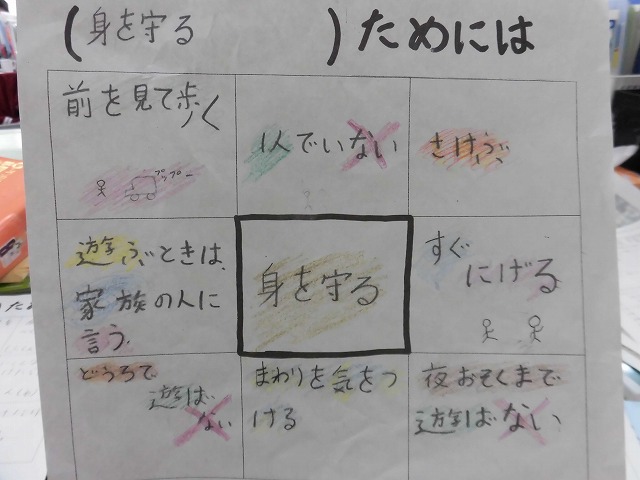 (身を守る)ためには
前を見て歩く
プップー
1人でいない
さけぶ
遊ぶときは、
家族の人に
言う。
身を守る
すぐ
にげる
どうろで
遊ば
ない
まわりを気をつ
ける
夜おそくまで
遊ばない